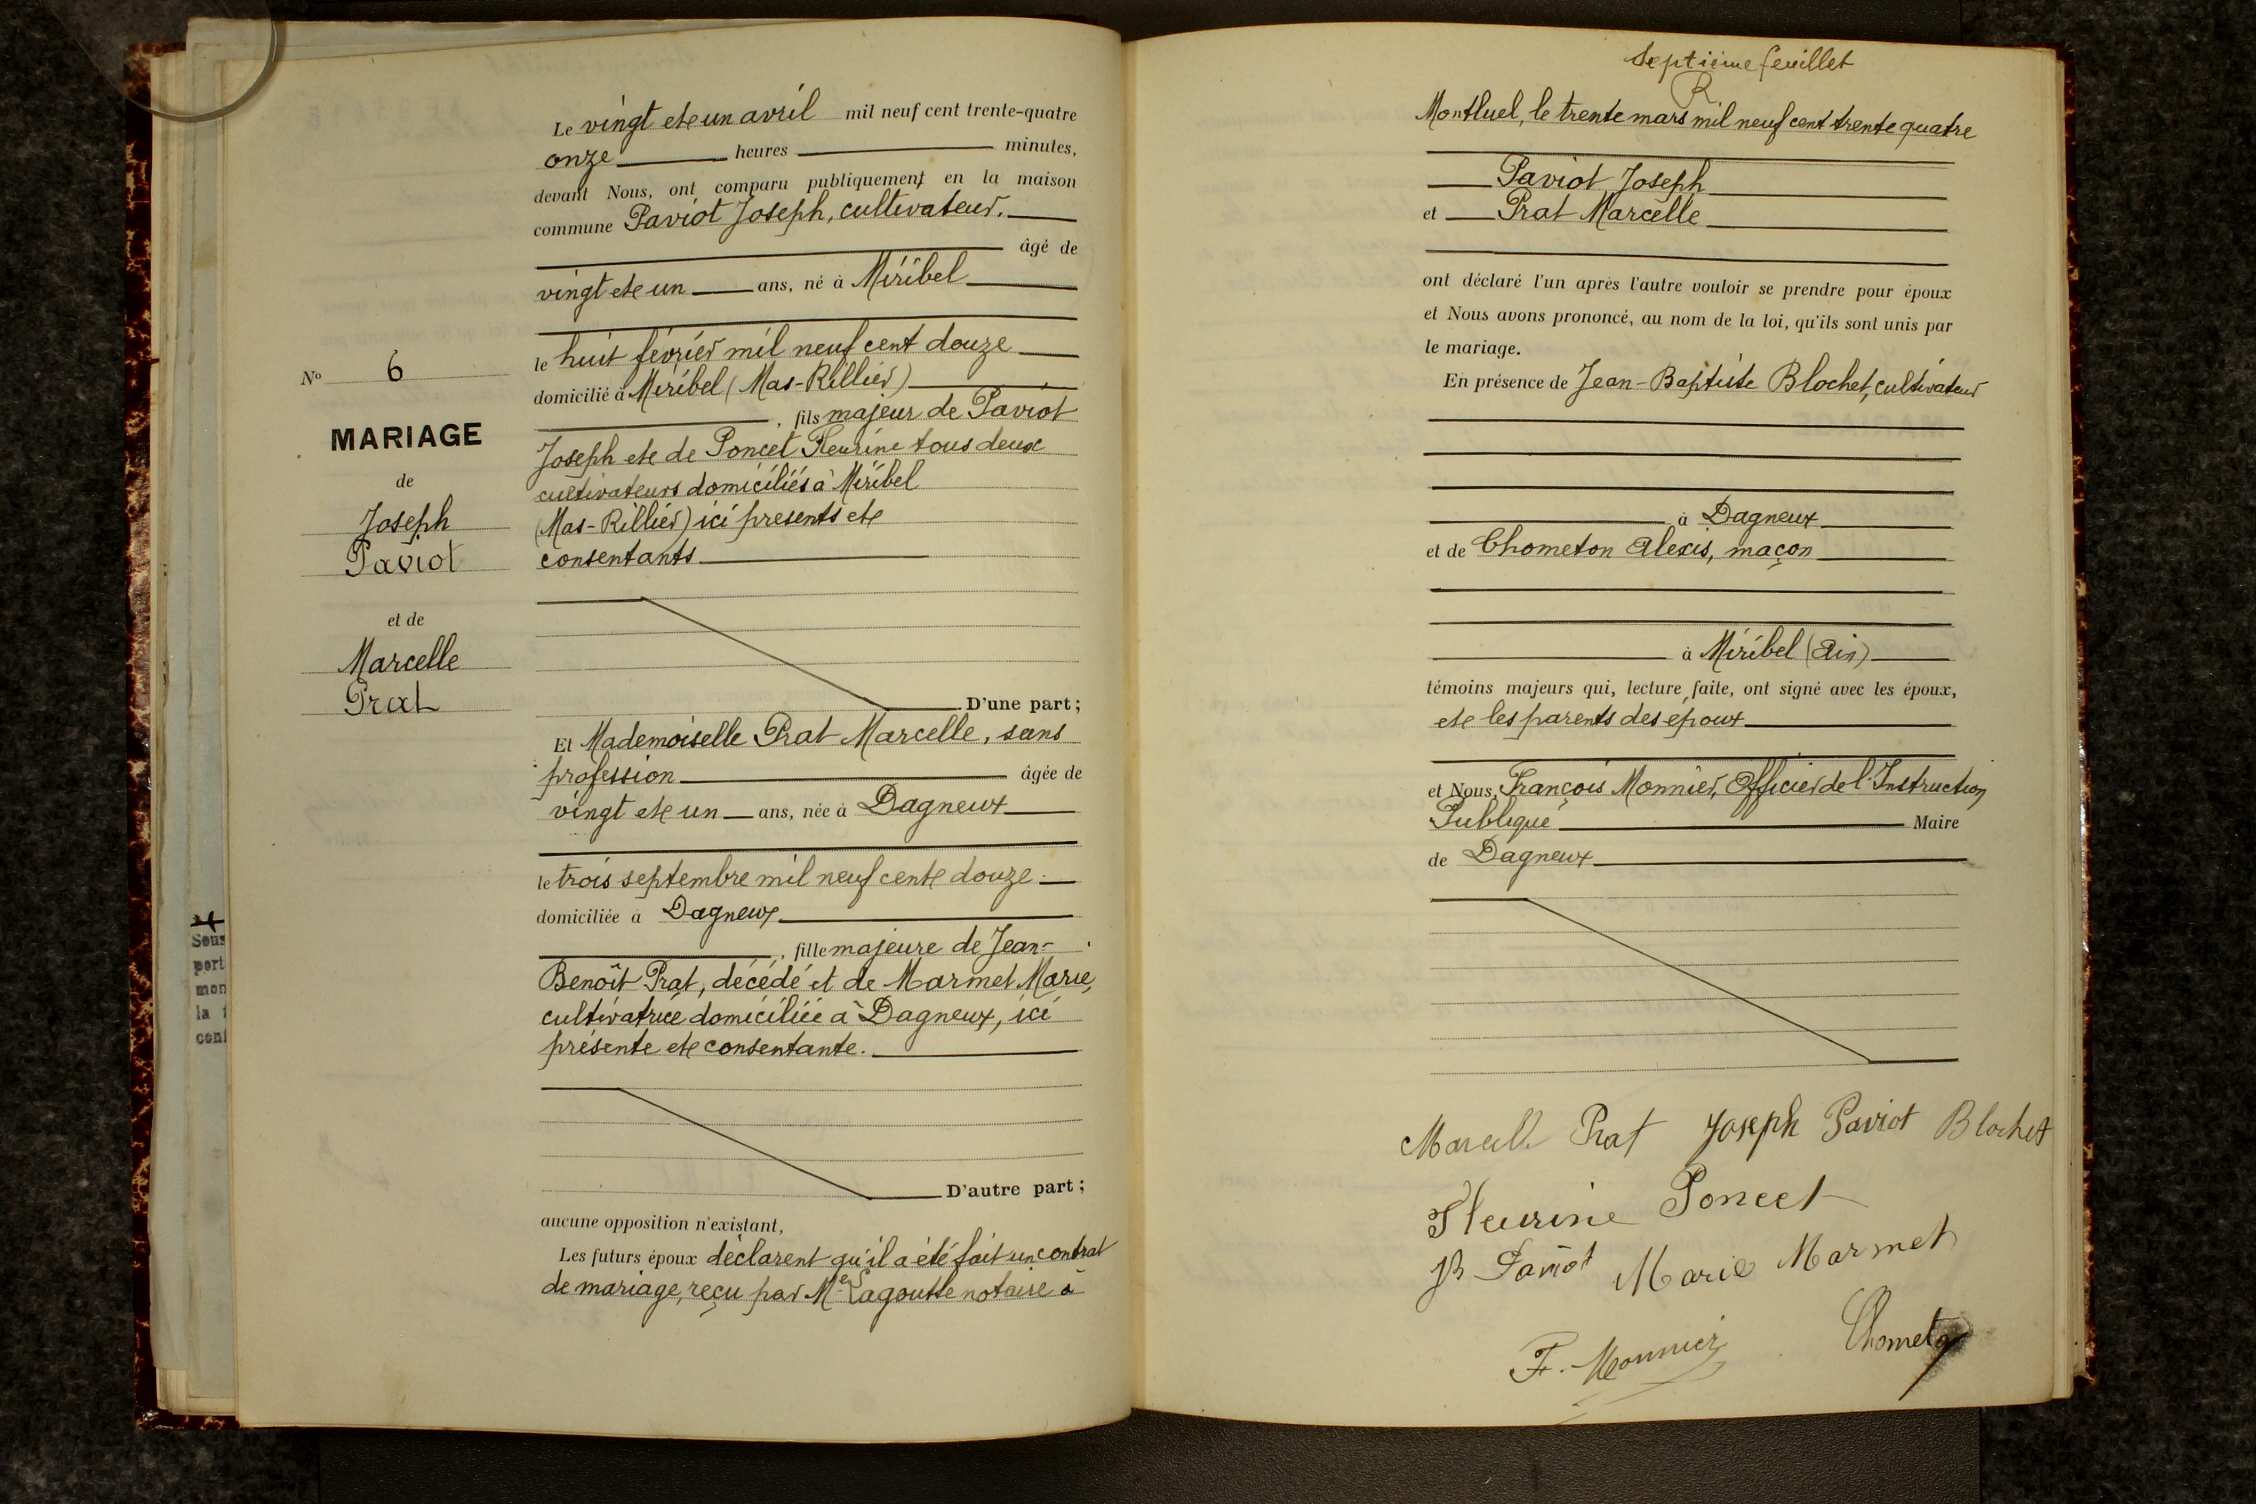 Le vingt et un avril mil neuf cent trente-quatre
onze heures minutes,
devant Nous, ont comparu publiquement en la maison
commune Paviot Joseph, cultivateur.
âgé de
vingt et un ans, né à Miribel
le huit février mil neuf cent douze
domicilié à Miribel (Mas-Rillier)
, fils majeur de Paviot
Joseph et de Poncet Fleurine tous deux
cultivateurs domiciliés à Miribel
(Mas-Rillier) ici présents et
consentants
D'une part;
Et Mademoiselle Prat Marcelle, sans
profession âgée de
vingt et un ans, née à Dagneux
le trois septembre mil neuf cent douze.
domiciliée à Dagneux
, fille majeure de Jean-
Benoît Prat, décédé et de Marmet Marie,
cultivatrice domiciliée à Dagneux, ici
présente et consentante.
D'autre part;
aucune opposition n'existant,
Les futurs époux déclarent qu'il a été fait un contrat
de mariage, reçu par Me Lagoutte notaire à
No 6
MARIAGE
de
Joseph
Paviot
et de
Marcelle
Prat
Sous
port
mon
la
Septième feuillet
R
Montluel, le trente mars mil neuf cent trente quatre
Paviot Joseph
et Prat Marcelle
ont déclaré l'un après l'autre vouloir se prendre pour époux
et Nous avons prononcé, au nom de la loi, qu'ils sont unis par
le mariage.
En présence de Jean-Baptiste Blochet, cultivateur
à Dagneux
et de Chometon Alexis, maçon
à Miribel (Ain)
témoins majeurs qui, lecture faite, ont signé avec les époux,
et les parents des époux
et Nous, François Monnier, Officier de l'Instruction
Publique Maire
de Dagneux
Marcelle Prat Joseph Paviot Blochet
Fleurine Poncet
JB Paviot Marie Marmet
F. Monnier Chometon